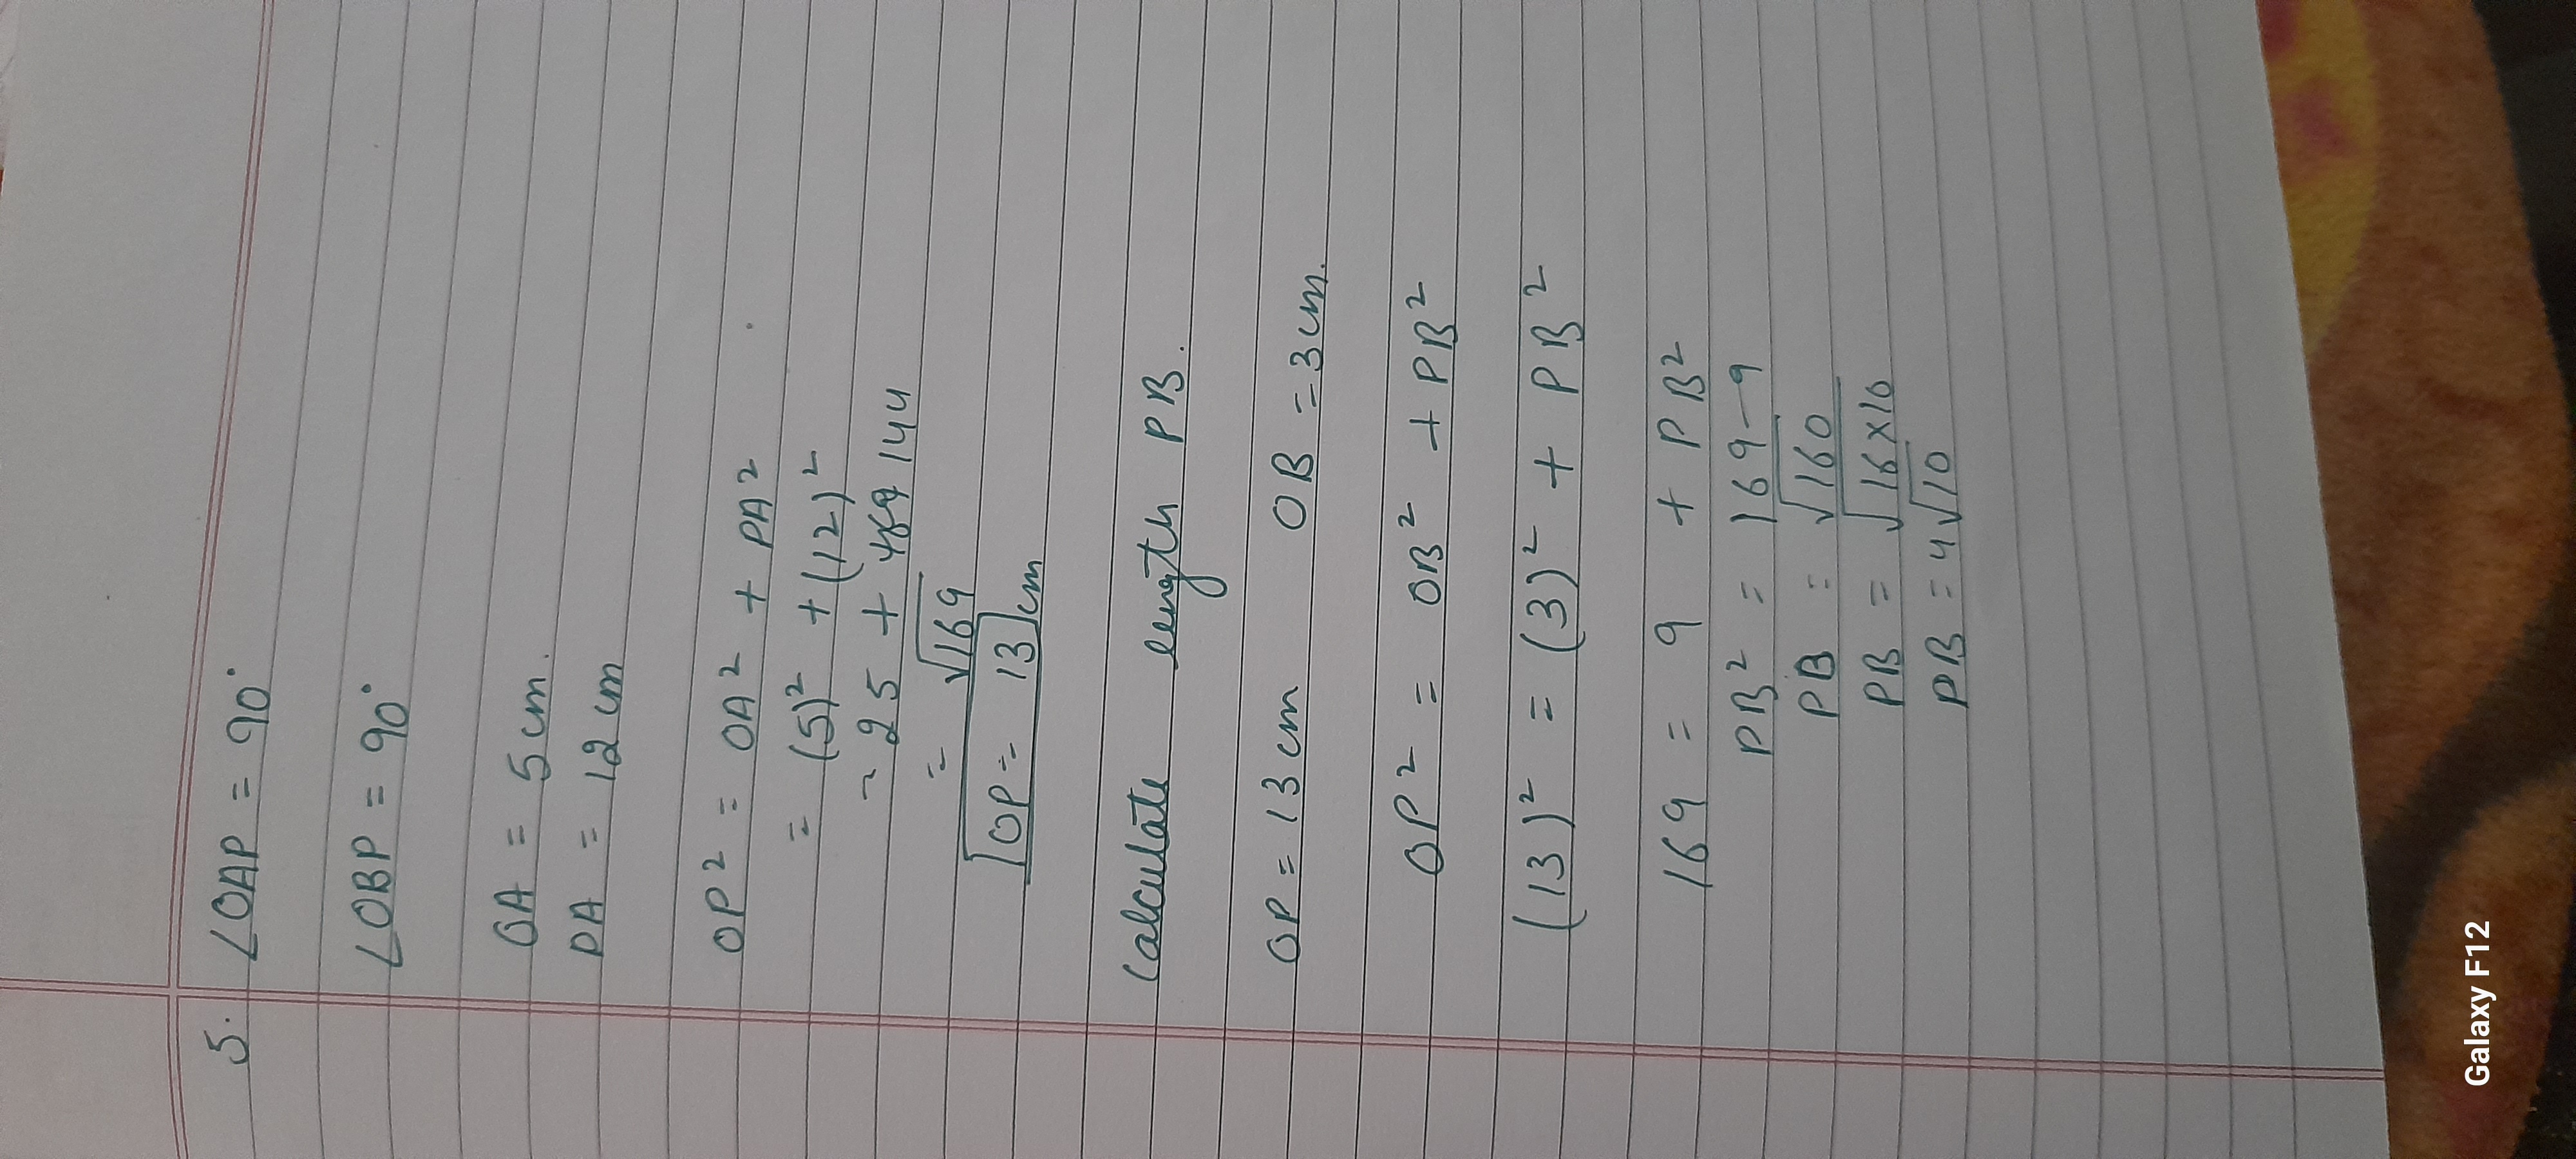 5. ∠OAP = 90°
∠OBP = 90°
OA = 5cm.
PA = 12cm
OP² = OA² + PA²
= (5)² + (12)²
= 25 + 144
= √169
OP = 13 cm
Calculate length PB.
OP = 13cm OB = 3cm.
OP² = OB² + PB²
(13)² = (3)² + PB²
169 = 9 + PB²
PB² = 169-9
PB = √160
PB = √16×10
PB = 4√10
Galaxy F12